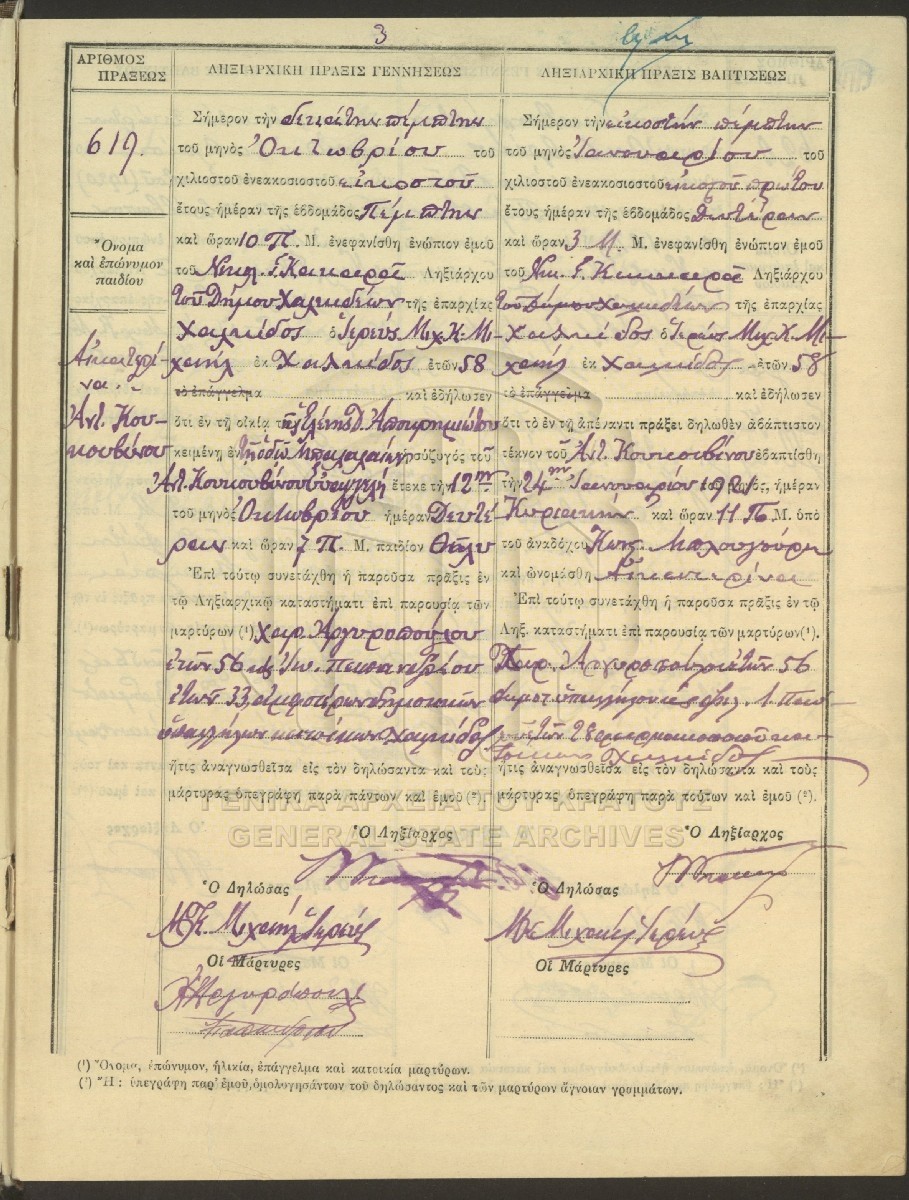 3
ΑΡΙΘΜΟΣ
ΠΡΑΞΕΩΣ
619.
Ὄνομα
καὶ ἐπώνυμον
παιδίου
Αἰκατερί-
να
Ἀντ. Κου-
κουβίνου
ΛΗΞΙΑΡΧΙΚΗ ΠΡΑΞΙΣ ΓΕΝΝΗΣΕΩΣ
Σήμερον τὴν δεκάτην πέμπτην
τοῦ μηνὸς Ὀκτωβρίου τοῦ
χιλιοστοῦ ἐνεακοσιοστοῦ εἰκοστοῦ
ἔτους ἡμέραν τῆς ἑβδομάδος Πέμπτην
καὶ ὥραν 10 Π. Μ. ἐνεφανίσθη ἐνώπιον ἐμοῦ
τοῦ Νικολ. Γ. Κακαρᾶ Ληξιάρχου
τοῦ Δήμου Χαλκιδέων τῆς ἐπαρχίας
Χαλκίδος ὁ Ἱερεὺς Μιχ. Κ. Μι-
χαήλ ἐκ Χαλκίδος ἐτῶν 58
τὸ ἐπάγγελμα καὶ ἐδήλωσεν
ὅτι ἐν τῇ οἰκίᾳ τῆς Ἑλένης Δ.
κειμένῃ ἐν τῇ ὁδῷ ἡ σύζυγός τοῦ
Ἀντ. Κουκουβίνου ἔτεκε τὴν 12ην
τοῦ μηνὸς Ὀκτωβρίου ἡμέραν Δευτέ-
ραν καὶ ὥραν 7 Π. Μ. παιδίον θῆλυ
Ἐπὶ τούτῳ συνετάχθη ἡ παροῦσα πρᾶξις ἐν
τῷ Ληξιαρχικῷ καταστήματι ἐπὶ παρουσίᾳ τῶν
μαρτύρων (¹) Χαρ. Ἀργυροπούλου
ἐτῶν 56 καὶ Ἰω. Παπανδρέου
ἐτῶν 33, ἀμφοτέρων δημοτικῶν
ὑπαλλήλων κατοίκων Χαλκίδος
ἥτις ἀναγνωσθεῖσα εἰς τὸν δηλώσαντα καὶ τοὺς
μάρτυρας ὑπεγράφη παρὰ πάντων καὶ ἐμοῦ (²).
Ὁ Ληξίαρχος
Ὁ Δηλώσας
Μ. Κ. Μιχαήλ Ἱερεύς
Οἱ Μάρτυρες
Χ Ἀργυρόπουλ
ΛΗΞΙΑΡΧΙΚΗ ΠΡΑΞΙΣ ΒΑΠΤΙΣΕΩΣ
Σήμερον τὴν εἰκοστὴν πέμπτην
τοῦ μηνὸς Ἰανουαρίου τοῦ
χιλιοστοῦ ἐνεακοσιοστοῦ εἰκοστοῦ πρώτου
ἔτους ἡμέραν τῆς ἑβδομάδος Δευτέραν
καὶ ὥραν 3 Μ. Μ. ἐνεφανίσθη ἐνώπιον ἐμοῦ
τοῦ Νικ. Γ. Κακαρᾶ Ληξιάρχου
τοῦ Δήμου Χαλκιδέων τῆς ἐπαρχίας
Χαλκίδος ὁ Ἱερεὺς Μιχ. Κ. Μι-
χαήλ ἐκ Χαλκίδος ἐτῶν 58
τὸ ἐπάγγελμα καὶ ἐδήλωσεν
ὅτι τὸ ἐν τῇ ἀπέναντι πράξει δηλωθὲν ἀβάπτιστον
τέκνον τοῦ Ἀντ. Κουκουβίνου ἐβαπτίσθη
τὴν 24ην Ἰανουαρίου ἡμέραν
Κυριακὴν καὶ ὥραν 11 Π. Μ. ὑπὸ
τοῦ ἀναδόχου
καὶ ὠνομάσθη Αἰκατερίνα
Ἐπὶ τούτῳ συνετάχθη ἡ παροῦσα πρᾶξις ἐν τῷ
Ληξ. καταστήματι ἐπὶ παρουσίᾳ τῶν μαρτύρων (¹).
Χαρ. Ἀργυροπούλου ἐτῶν 56
ἐτῶν 28 φαρμακοποιοῦ κα-
τοίκων Χαλκίδος
ἥτις ἀναγνωσθεῖσα εἰς τὸν δηλώσαντα καὶ τοὺς
μάρτυρας ὑπεγράφη παρὰ τούτων καὶ ἐμοῦ (²).
Ὁ Ληξίαρχος
Ὁ Δηλώσας
Μ Κ Μιχαήλ Ἱερεύς
Οἱ Μάρτυρες
ΓΕΝΙΚΑ ΑΡΧΕΙΑ ΤΟΥ ΚΡΑΤΟΥΣ
GENERAL STATE ARCHIVES
(¹) Ὄνομα, ἐπώνυμον, ἡλικία, ἐπάγγελμα καὶ κατοικία μαρτύρων.
(²) Ἢ : ὑπεγράφη παρ' ἐμοῦ, ὁμολογησάντων τοῦ δηλώσαντος καὶ τῶν μαρτύρων ἄγνοιαν γραμμάτων.